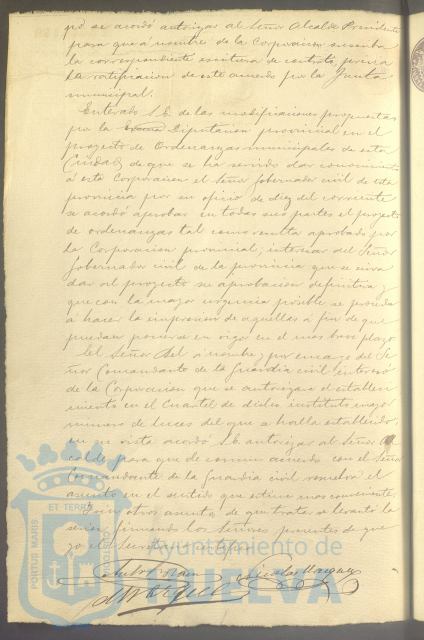 pó se acordó autorizar al Señor Alcalde Presidente
para que á nombre de la Corporacion suscriba
la correspondiente escritura de contrato, previa
la ratificacion de este acuerdo por la Junta
municipal.
Enterado S.E. de las modificaciones propuestas
por la Diputacion provincial en el
proyecto de Ordenanzas municipales de esta
Ciudad, de que se ha servido dar conocimiento
á esta Corporacion el Señor Gobernador civil de esta
provincia por su oficio de diez del corriente
se acordó aprobar en todas sus partes el proyecto
de ordenanzas tal como resulta aprobado por
la Corporacion provincial; interesar del Señor
Gobernador civil de la provincia que se sirva
dar al proyecto su aprobacion definitiva y
que con la mayor urgencia posible se proceda
á hacer la impresion de aquellas á fin de que
puedan ponerse en vigor en el mas breve plazo
El Señor á nombre y por encargo del Se
ñor Comandante de la Guardia civil interesó
de la Corporacion que se autorizase el estableci
miento en el Cuartel de dicho instituto mayor
numero de luces del que se halla establecido,
en su vista acordó S.E. autorizar al Señor Al
calde para que de comun acuerdo con el Señor
Comandante de la Guardia civil resuelva el
asunto en el sentido que estime mas conveniente.
Sin otros asuntos de que tratar se levantó la
sesion firmando los Señores presentes de que
yo el Secretario certifico
Ayuntamiento de
HUELVA
PORTUS MARIS
ET TERRE
CUSTODIA